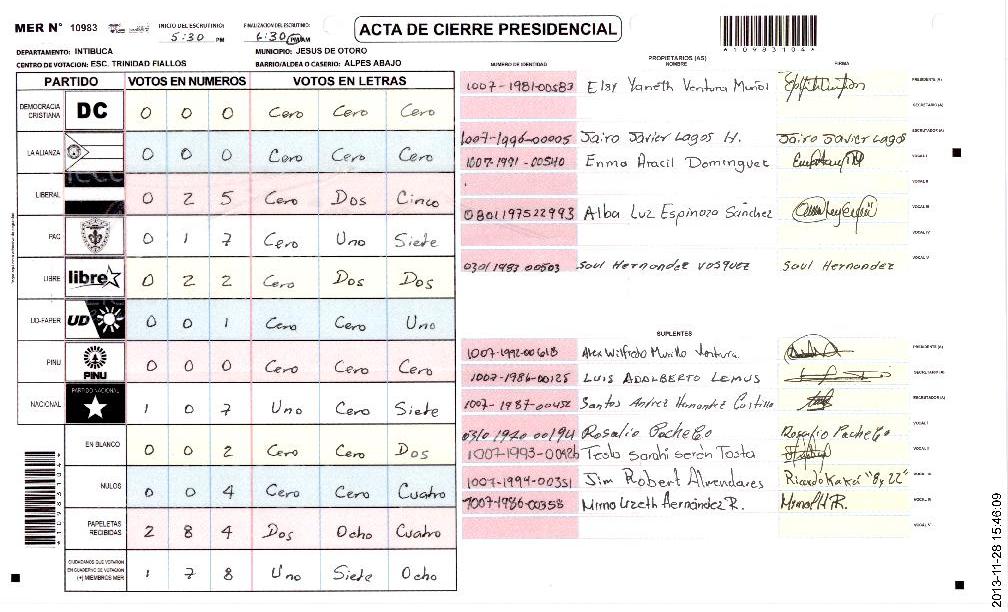 MER N° 10983 INICIO DEL ESCRUTINIO: 5:30 PM FINALIZACION DEL ESCRUTINIO: 6:30 PM AM
ACTA DE CIERRE PRESIDENCIAL
*10983104*
DEPARTAMENTO: INTIBUCA MUNICIPIO: JESUS DE OTORO
CENTRO DE VOTACION: ESC. TRINIDAD FIALLOS BARRIO/ALDEA O CASERIO: ALPES ABAJO
PARTIDO VOTOS EN NUMEROS VOTOS EN LETRAS
DEMOCRACIA CRISTIANA DC 0 0 0 Cero Cero Cero
LA ALIANZA 0 0 0 Cero Cero Cero
LIBERAL 0 2 5 Cero Dos Cinco
PAC 0 1 7 Cero Uno Siete
LIBRE libre 0 2 2 Cero Dos Dos
UD-FAPER UD 0 0 1 Cero Cero Uno
PINU PINU 0 0 0 Cero Cero Cero
NACIONAL PARTIDO NACIONAL 1 0 7 Uno Cero Siete
EN BLANCO 0 0 2 Cero Cero Dos
NULOS 0 0 4 Cero Cero Cuatro
PAPELETAS RECIBIDAS 2 8 4 Dos Ocho Cuatro
CIUDADANOS QUE VOTARON EN CUADERNO DE VOTACION (+) MIEMBROS MER 1 7 8 Uno Siete Ocho
*10983104*
PROPIETARIOS (AS)
NUMERO DE IDENTIDAD NOMBRE FIRMA
1007-1981-00583 Elsy Yaneth Ventura Muñoz PRESIDENTE (A)
SECRETARIO (A)
1007-1996-00005 Jairo Javier Lagos H. Jairo Javier Lagos ESCRUTADOR (A)
1007-1991-00540 Enma Aracil Dominguez VOCAL I
VOCAL II
0801197522993 Alba Luz Espinoza Sánchez VOCAL III
VOCAL IV
0301 1983 00503 Saul Hernandez vasquez Saul Hernandez VOCAL V
SUPLENTES
1007-1992-00618 Alex Wilfredo Murillo Ventura. PRESIDENTE (A)
1007-1986-00125 LUIS ADALBERTO LEMUS SECRETARIO (A)
1007-1987-00452 Santos Andrez Hernandez Castillo ESCRUTADOR (A)
0310 1970 00194 Rosalio Pacheco Rosalio Pacheco VOCAL I
1007-1993-00426 Tesla Sarahi Serén Tosta VOCAL II
1007-1994-00351 Jim Robert Almendares VOCAL III
1007-1986-00358 Mirna Lizeth Hernández R. Mirna H R. VOCAL IV
VOCAL V
2013-11-28 15:46:09